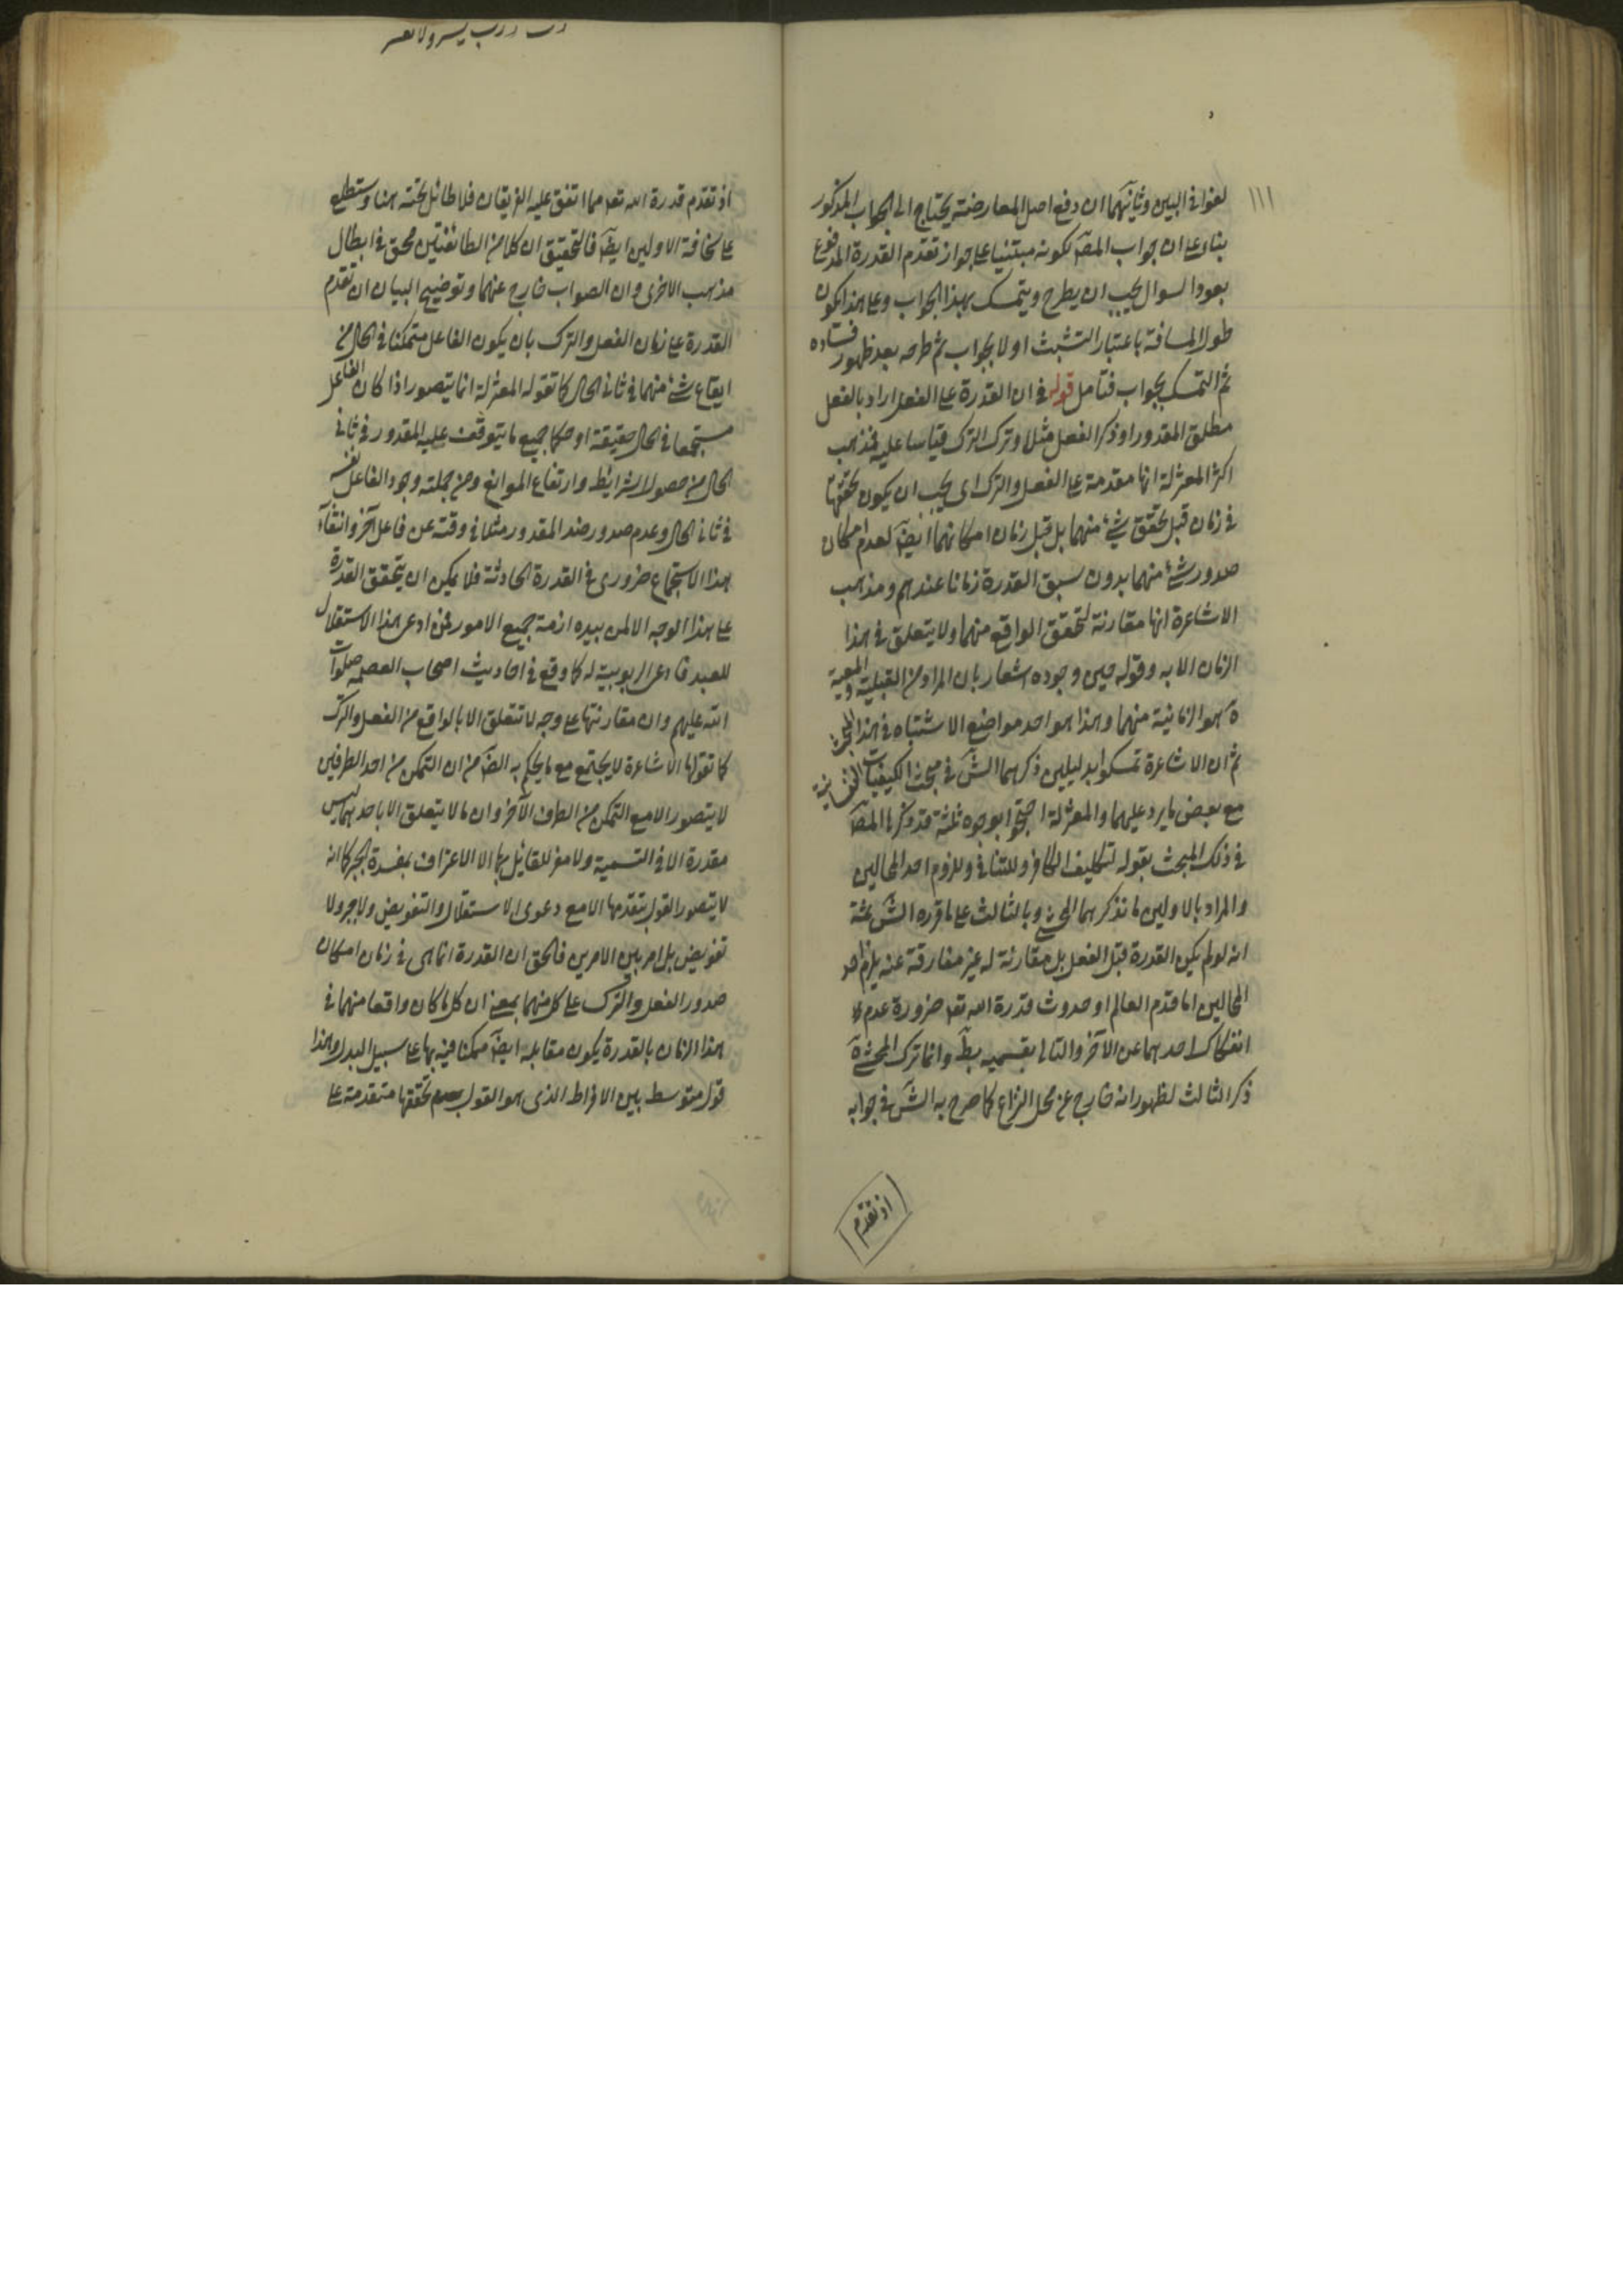 ١١١
لغوا فى البين وثانيهما ان دفع اصل المعارضة يحتاج الى الجواب المذكور
بناء على ان جواب المصَ لكونه مبتنيا على جواز تقدم القدرة المدفوع
بعود السوال يجب ان يطرح ويتمسك بهذا الجواب وعلى هذا يكون
طول المسافة باعتبار التشبث اولا بجواب ثم طرحه بعد ظهور فساده
ثم التمسك بجواب فتامل قوله فى ان القدرة على الفعل اراد بالفعل
مطلق المقدور او ذكر الفعل مثلا وترك الترك قياسا عليه فمذهب
اكثر المعتزلة انها مقدمة على الفعل والترك اى يجب ان يكون تحققها
فى زمان قبل تحقق شئ منهما بل قبل زمان امكانهما ايضَ لعدم امكان
صدور شئ منهما بدون سبق القدرة زمانا عندهم ومذهب
الاشاعرة انها مقارنة لتحقق الواقع منهما ولا يتعلق فى هذا
الزمان الا به وقوله حين وجوده اشعار بان المراد من القبلية والمعية
ة هو الزمانية منهما وهذا هو احد مواضع الاشتباه فى هذا المبحث
ثم ان الاشاعرة تمسكوا بدليلين ذكرهما الشَ فى مبحث الكيفيات النفسانية
مع بعض ما يرد عليهما والمعتزلة احتجوا بوجوه ثلثة قد ذكرها المصَ
فى ذلك المبحث بقوله لتكليف الكافر وللتنافى وللزوم احد المحالين
والمراد بالاولين ما نذكرهما المحشى وبالثالث على ما قرره الشَ ثمة
انه لو لم يكن القدرة قبل الفعل بل مقارنة له غير مفارقة عنه يلزم احد
المحالين اما قدم العالم او حدوث قدرة الله تعـ ضرورة عدم
انفكاك احدهما عن الآخر والتالى بقسميه بطَ وانما ترك المحشى
ذكر الثالث لظهور انه خارج عن محل النزاع كما صرح به الشَ فى جوابه
اذ تقدم
رب يسر ولا تعسر
اذ تقدم قدرة الله تعـ مما اتفق عليه الفريقان فلا طائل تحته هنا وستطلع
على سخافة الاولين ايضَ فالتحقيق ان كلا من الطائفتين محق فى ابطال
مذهب الاخرى وان الصواب خارج عنهما وتوضيح البيان ان تقدم
القدرة على زمان الفعل والترك بان يكون الفاعل متمكنا فى الحال من
ايقاع شئ منهما فى ثانى الحال كما تقوله المعتزلة انما يتصور اذا كان الفاعل
مستجمعا فى الحال حقيقة او حكما جميع ما يتوقف عليه المقدور فى ثانى
الحال من حصول الشرايط وارتفاع الموانع ومن جملته وجود الفاعل نفسه
فى ثانى الحال وعدم صدور ضد المقدور مثلا فى وقته عن فاعل آخر وانتفاء
هذا الاستجماع ضرورى فى القدرة الحادثة فلا يمكن ان يتحقق القدرة
على هذا الوجه الا لمن بيده ازمة جميع الامور فمن ادعى هذا الاستقلال
للعبد فادعى الربوبية له كما وقع فى احاديث اصحاب العصمة صلوات
الله عليهم وان مقارنتها على وجه لا تتعلق الا بالواقع من الفعل والترك
كما تقولها الاشاعرة لا يجتمع مع ما يحكم به الضَ من ان التمكن من احد الطرفين
لا يتصور الا مع التمكن من الطرف الآخر وان ما لا يتعلق الا باحدهما ليس
مقدرة الا فى التسمية ولا مفر للقائل بها الا الاعتراف بمفسدة الجبر كما انه
لا يتصور القول بتقدمها الا مع دعوى الاستقلال والتفويض ولا جبر ولا
تفويض بل امر بين الامرين فالحق ان القدرة انما هى فى زمان امكان
صدور الفعل والترك على كل منهما بمعنى ان كل ما كان واقعا منهما فى
هذا الزمان بالقدرة يكون مقابله ايضَ ممكنا فيه بها على سبيل البدل وهذا
قول متوسط بين الافراط الذى هو القول تحققها متقدمة على